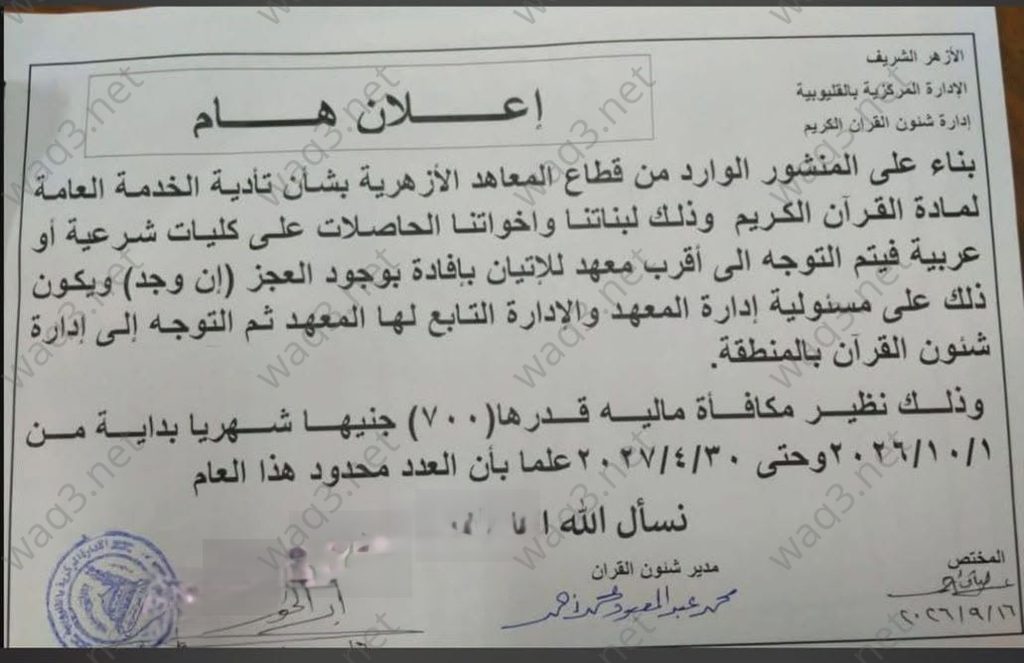 الأزهر الشريف
الإدارة المركزية بالقليوبية
إدارة شئون القرآن الكريم
إعـــلان هـــام
بناء على المنشور الوارد من قطاع المعاهد الأزهرية بشأن تأدية الخدمة العامة
لمادة القرآن الكريم وذلك لبناتنا واخواتنا الحاصلات على كليات شرعية أو
عربية فيتم التوجه الى أقرب معهد للإتيان بإفادة بوجود العجز (إن وجد) ويكون
ذلك على مسئولية إدارة المعهد والإدارة التابع لها المعهد ثم التوجه إلى إدارة
شئون القرآن بالمنطقة.
وذلك نظير مكافأة ماليه قدرها(٧٠٠) جنيها شهريا بداية من
٢٠٢٦/١٠/١وحتى ٢٠٢٧/٤/٣٠ علما بأن العدد محدود هذا العام
نسأل الله
المختص
مدير شئون القران
محمد عبد المعبود محمد أحمد
٢٠٢٦/٩/١٦
waq3.net